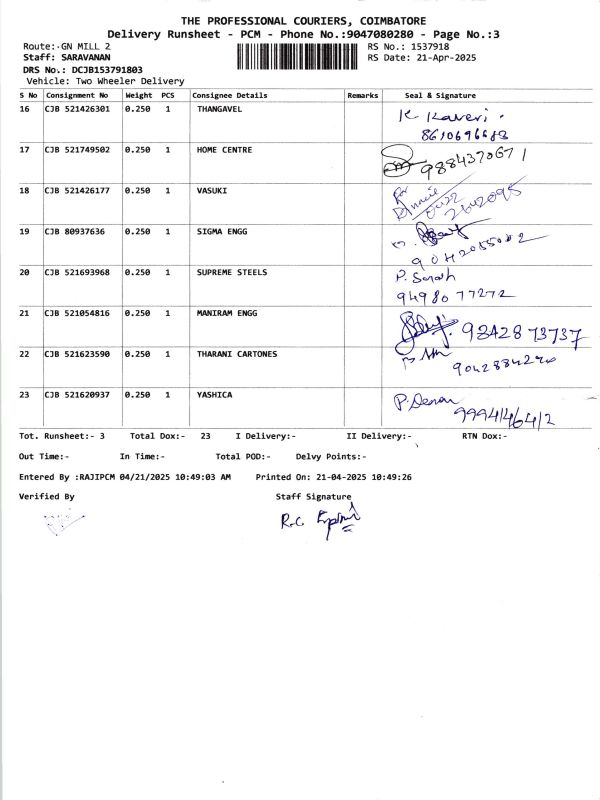 THE PROFESSIONAL COURIERS, COIMBATORE
Delivery Runsheet - PCM - Phone No.:9047080280 - Page No.:3
Route:-GN MILL 2
RS No.: 1537918
Staff: SARAVANAN
RS Date: 21-Apr-2025
DRS No.: DCJB153791803
Vehicle: Two Wheeler Delivery
S No Consignment No Weight PCS Consignee Details Remarks Seal & Signature
16 CJB 521426301 0.250 1 THANGAVEL K Kaveri.
8610696688
17 CJB 521749502 0.250 1 HOME CENTRE 9884370671
18 CJB 521426177 0.250 1 VASUKI for
0422
2642095
19 CJB 80937636 0.250 1 SIGMA ENGG
20 CJB 521693968 0.250 1 SUPREME STEELS P. Sarath
94980 77272
21 CJB 521054816 0.250 1 MANIRAM ENGG 9342873737
22 CJB 521623590 0.250 1 THARANI CARTONES
23 CJB 521620937 0.250 1 YASHICA
99941416412
Tot. Runsheet:- 3 Total Dox:- 23 I Delivery:- II Delivery:- RTN Dox:-
Out Time:- In Time:- Total POD:- Delvy Points:-
Entered By :RAJIPCM 04/21/2025 10:49:03 AM Printed On: 21-04-2025 10:49:26
Verified By Staff Signature
R.C.